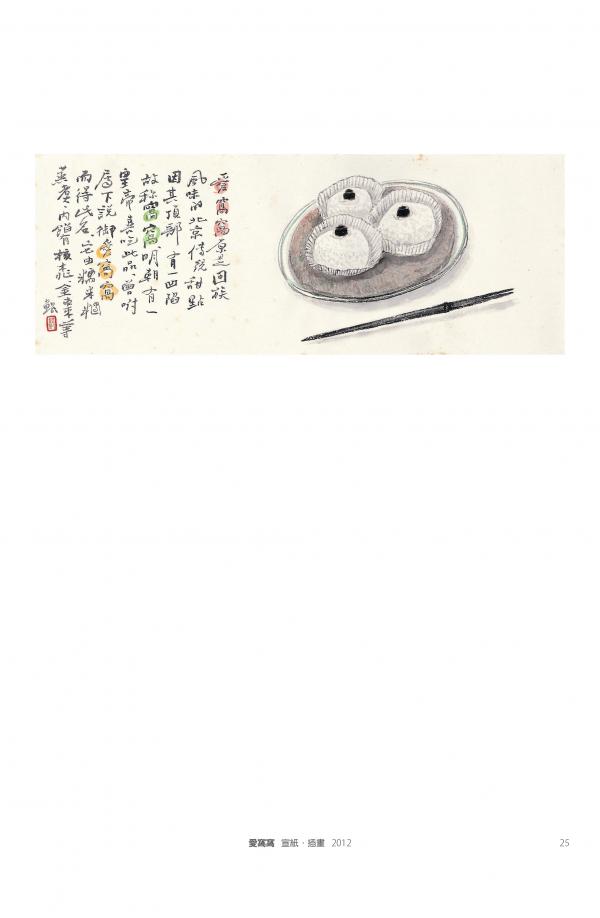 愛窩窩原是回族
風味的北京傳統甜點
因其頂部有一凹陷
故稱窩窩明朝有一
皇帝喜吃此品曾吩
咐下說御愛窩窩
而得此名它由糯米糰
蒸煮、內餡有核桃金棗等
愛窩窩 宣紙・插畫 2012
25